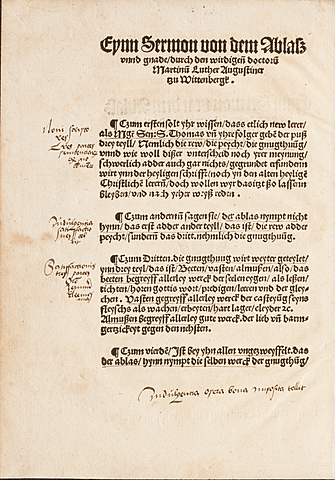 Eynn Sermon von dem Ablasz
vnnd gnade/ durch den wirdigen̄ doctorū
Martinū Luther Augustiner
tzu Wittenbergk.
¶ Czum ersten solt yhr wissen/ dass etlich new lerer/
als Mgr̄ Sen: S. Thomas vn̄ yhre folger gebē der pusz
drey teyll/ Nemlich die rew/ die peycht/ die gnugthuūg/
vnnd wie woll diszer vnterscheid noch yrer meynung/
schwerlich adder auch gar nichts/ gegrundet erfundenn
wirt ynn der heyligen schrifft/ noch yn den alten heyligē
Christlichē lerern̄/ doch wollen wyr das itzt szo lassenn
bleyben/ vnd nach yhrer weysz reden.
¶ Czum anderenn sagen sie/ der ablas nympt nicht
hynn/ das erst adder ander teyll/ das ist/ die rew adder
peycht/ sundern̄ das drit. nehmlich die gnugthuūg.
¶ Czum Dritten. die gnugthuūg wirt weyter geteylet/
ynn drey teyl/ das ist/ Beeten/ vasten/ almuszen/ also/ das
beeten begreyff allerley werck der seelen eygen/ als leszen/
tichten/ horen gottis wort/ predigen/ leeren vnd der gley-
chen. Vasten begreyff allerley werck der casteyūg seyns
fleyschs als wachen/ erbeyten/ hart lager/ cleyder ꝛc.
Almuszen begreyff allerley gute werck. der lieb vn̄ barm-
hertzickeyt gegen den nehsten.
¶ Czum vierdē/ Jst bey yhn allen vngetzweyffelt. das
der ablas/ hynn nympt die selben werck der gnugthuūg/
Indulgentia opera bona imposita tollit